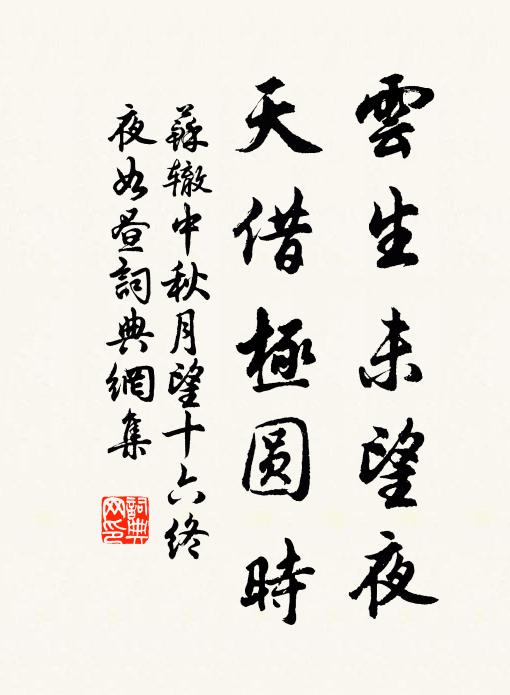 雲生未望夜
天借極圆時
蘇辙中秋月望十六终
夜如昼詞典網集
詞典
网印